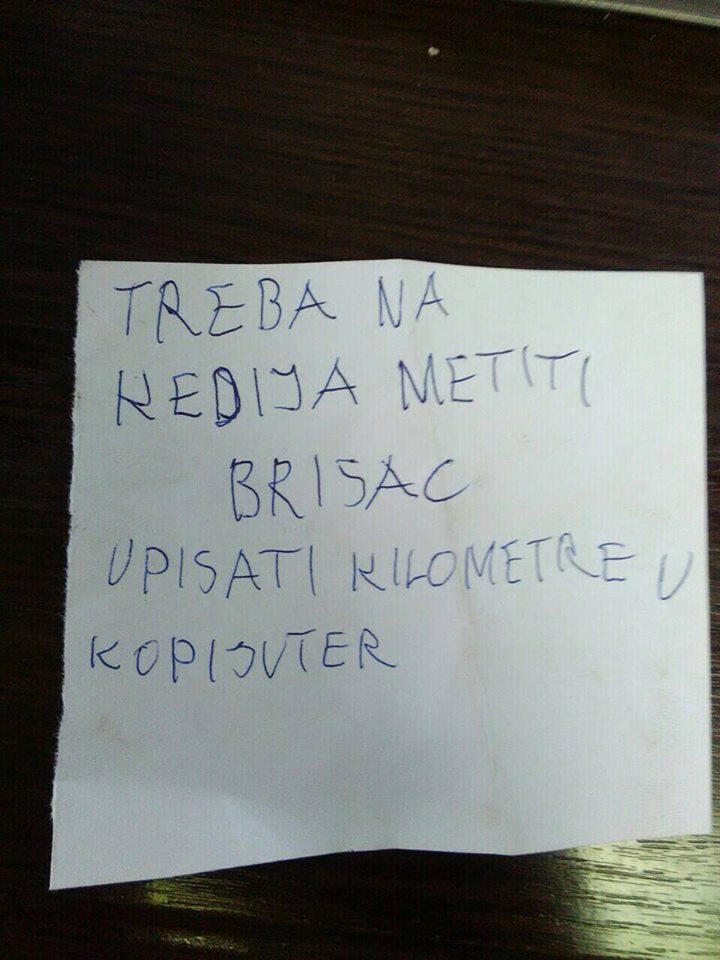 TREBA NA
KEDIJA METITI
BRISAC
UPISATI KILOMETRE U
KOPIJUTER